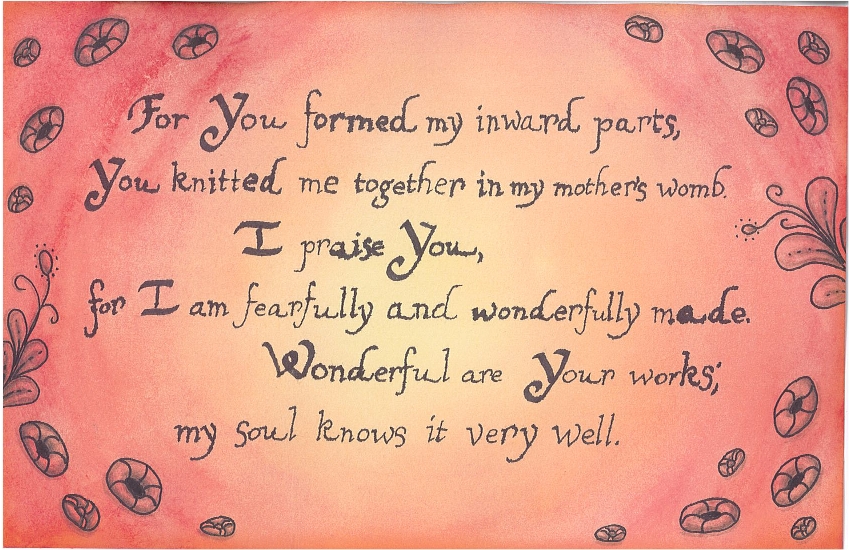 For You formed my inward parts,
You knitted me together in my mother's womb.
I praise You,
for I am fearfully and wonderfully made.
Wonderful are Your works;
my soul knows it very well.